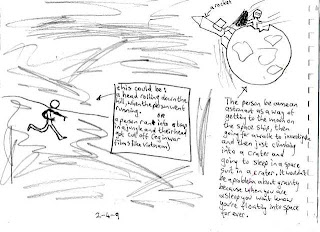 a rocket
this could be s
a head rolling down the
hill, when the person went
running.
OR
a person ran into a trap
in a jungle and their head
got cut off (eg in war
films like vietnam)
The person became an
astronaut as a way of
getting to the moon on
a space ship, then
going for a walk to investigate
and then just climbing
into a crater and
going to sleep in a space
suit in a crater. It wouldn't
be a problem about gravity
because when you are
asleep you wont know
you're floating into space
for ever.
2-4-9